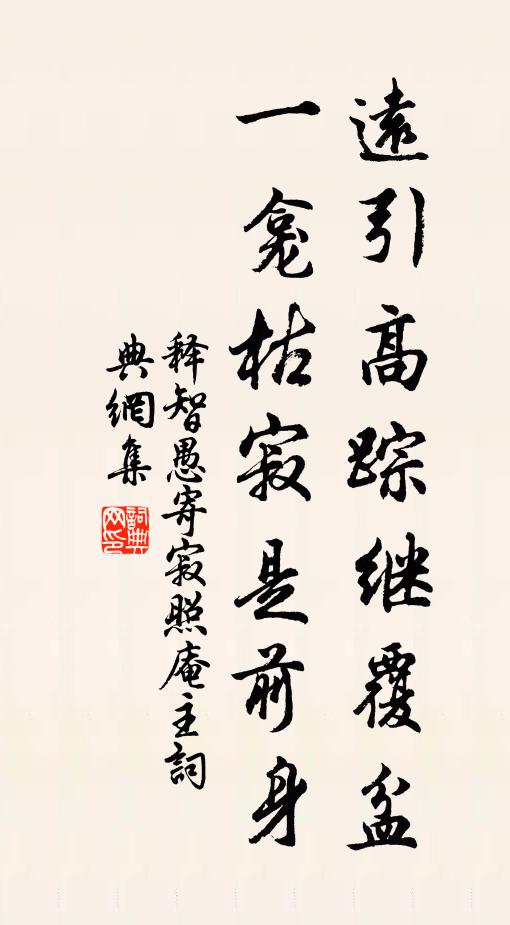 遠引高踪继覆盆
一龛枯寂是前身
释智愚寄寂照庵主詞
典網集
詞典網印